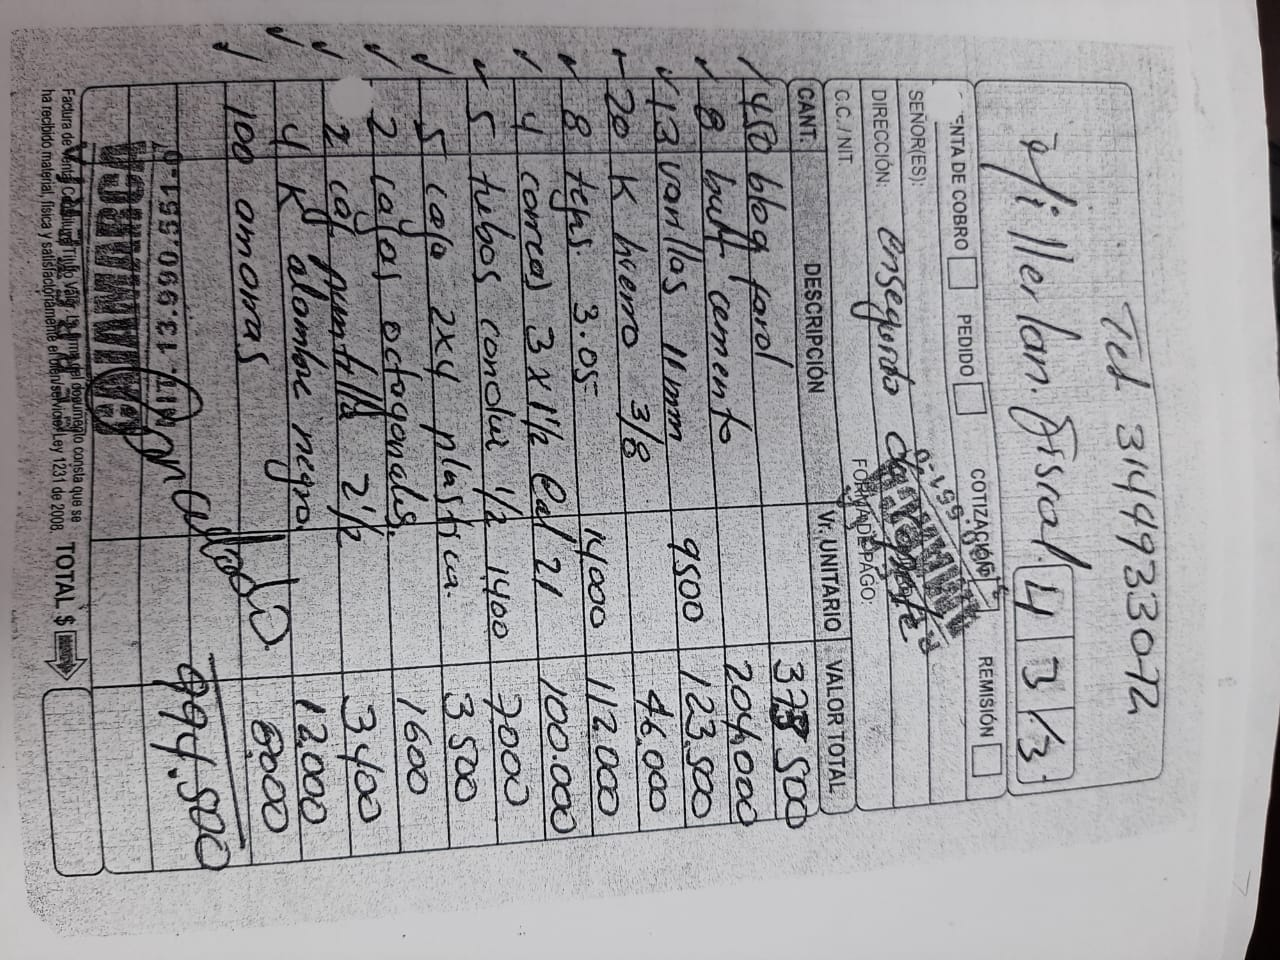 Tel 3144933072
Millerlan. Disral. 4 3 13
ENTA DE COBRO PEDIDO COTIZACIÓN REMISIÓN
SEÑOR(ES):
DIRECCIÓN: enseguida
C.C./NIT. FORMA DE PAGO:
CANT. DESCRIPCIÓN Vr. UNITARIO VALOR TOTAL
450 bloq farol 378 500
8 bult cemento 204,000
13 varillas 11 mm 9500 123.500
20 K hierro 3/8 46.000
8 tejas. 3.05 14000 112.000
4 correas 3 x 1 1/2 Cal 21 100.000
5 tubos condui 1/2 1400 7000
5 caja 2x4 plastica. 3.500
2 cajas octogonales. 1600
2 caj puntilla 2 1/2 3400
4 K alambre negro. 12.000
100 amarras 8.000
994.500
NIT. 13.990.551-07
Factura de Venta Cambiaria Título valor. La firma del documento consta que se
ha recibido material, física y satisfactoriamente el bien/servicio. Ley 1231 de 2008. TOTAL $